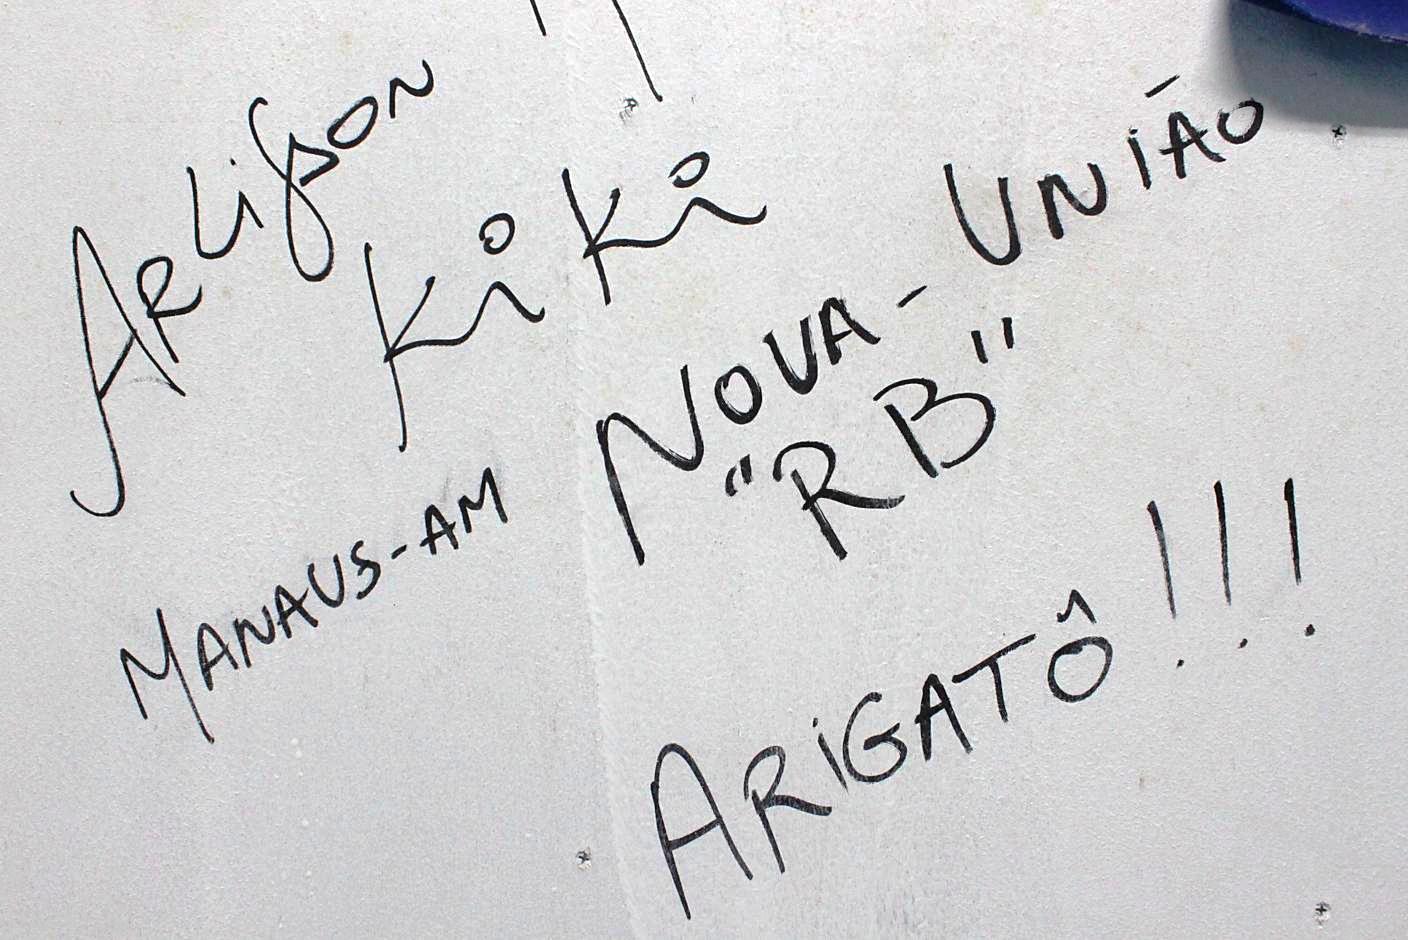 Arlison
KiKi
MANAUS-AM
NOVA-UNIÃO
"RB"
ARIGATÔ!!!